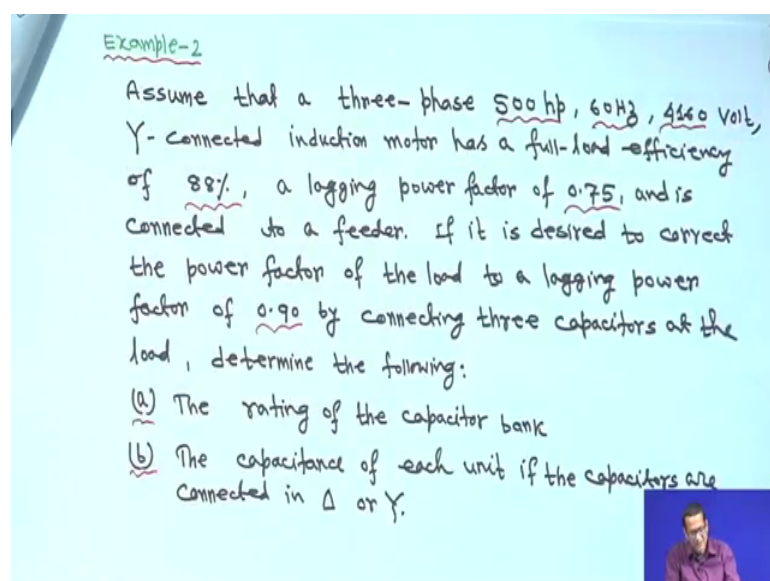 Example-2
Assume that a three-phase 500 hp, 60Hz, 4160 volt,
Y-connected induction motor has a full-load efficiency
of 88%, a lagging power factor of 0.75, and is
connected to a feeder. If it is desired to correct
the power factor of the load to a lagging power
factor of 0.90 by connecting three capacitors at the
load, determine the following:
(a) The rating of the capacitor bank
(b) The capacitance of each unit if the capacitors are
connected in Δ or Y.